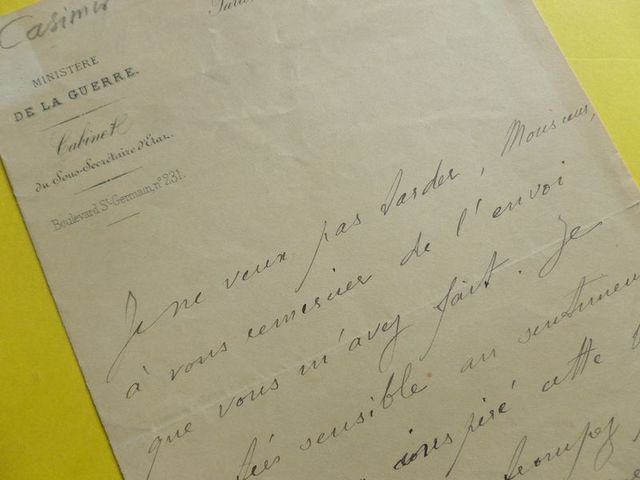 Casimir
Paris
MINISTÈRE
DE LA GUERRE.
Cabinet
du Sous-Secrétaire d'État.
Boulevard St-Germain, n° 231.
Je ne veux pas tarder, Monsieur,
à vous remercier de l'envoi
que vous m'avez fait. Je
très sensible au sentiment
inspiré cette